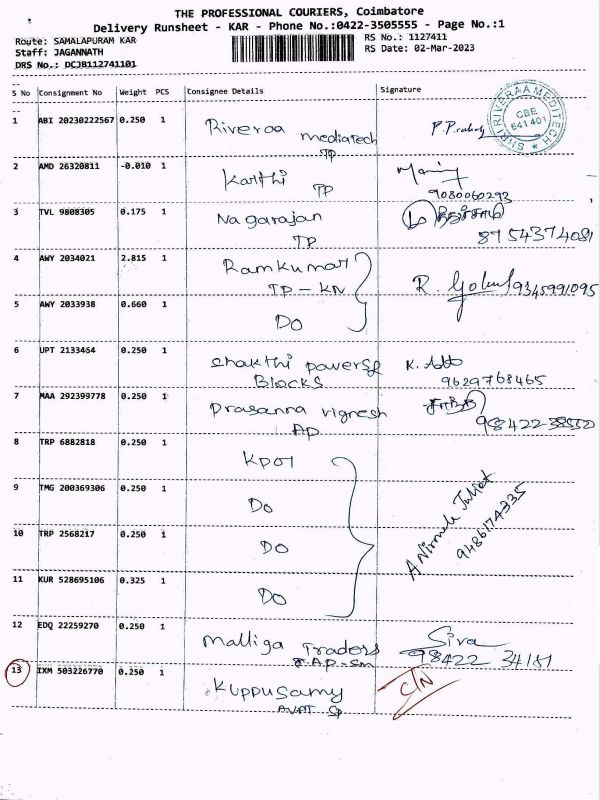 THE PROFESSIONAL COURIERS, Coimbatore
Delivery Runsheet - KAR - Phone No.:0422-3505555 - Page No.:1
Route: SAMALAPURAM KAR
RS No.: 1127411
Staff: JAGANNATH
RS Date: 02-Mar-2023
DRS No.: DCJB112741101
S No Consignment No Weight PCS Consignee Details Signature
1 ABI 20230222567 0.250 1 Riveraa mediatech
TP
SHRI RIVERAA MEDITECH
CBE
641 401
2 AMD 26320811 -0.010 1 Karthi TP
9080060293
3 TVL 9808305 0.175 1 Nagarajan
TP
87 54374081
4 AWY 2034021 2.815 1 Ramkumar
TP - KN
R. Gokul 9345991095
5 AWY 2033938 0.660 1 Do
6 UPT 2133464 0.250 1 Shakthi powers
Blocks
9629768465
7 MAA 292399778 0.250 1 Prasanna vignesh
AP
8 TRP 6882818 0.250 1 KPOT
9 TMG 200369306 0.250 1 Do
10 TRP 2568217 0.250 1 Do
9486174335
11 KUR 528695106 0.325 1 Do
12 EDQ 22259270 0.250 1 Malliga Traders
Siva
98422 34181
13 IXM 503226770 0.250 1 Kuppusamy
C/N